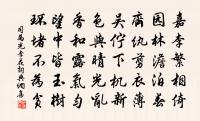 嘉李繁相倚
園林澹泊春
齊紈剪衣薄
吳紵下機新
色與晴光亂
香和露氣勻
望中皆玉樹
環堵不為貧
司馬光李花詞典網集